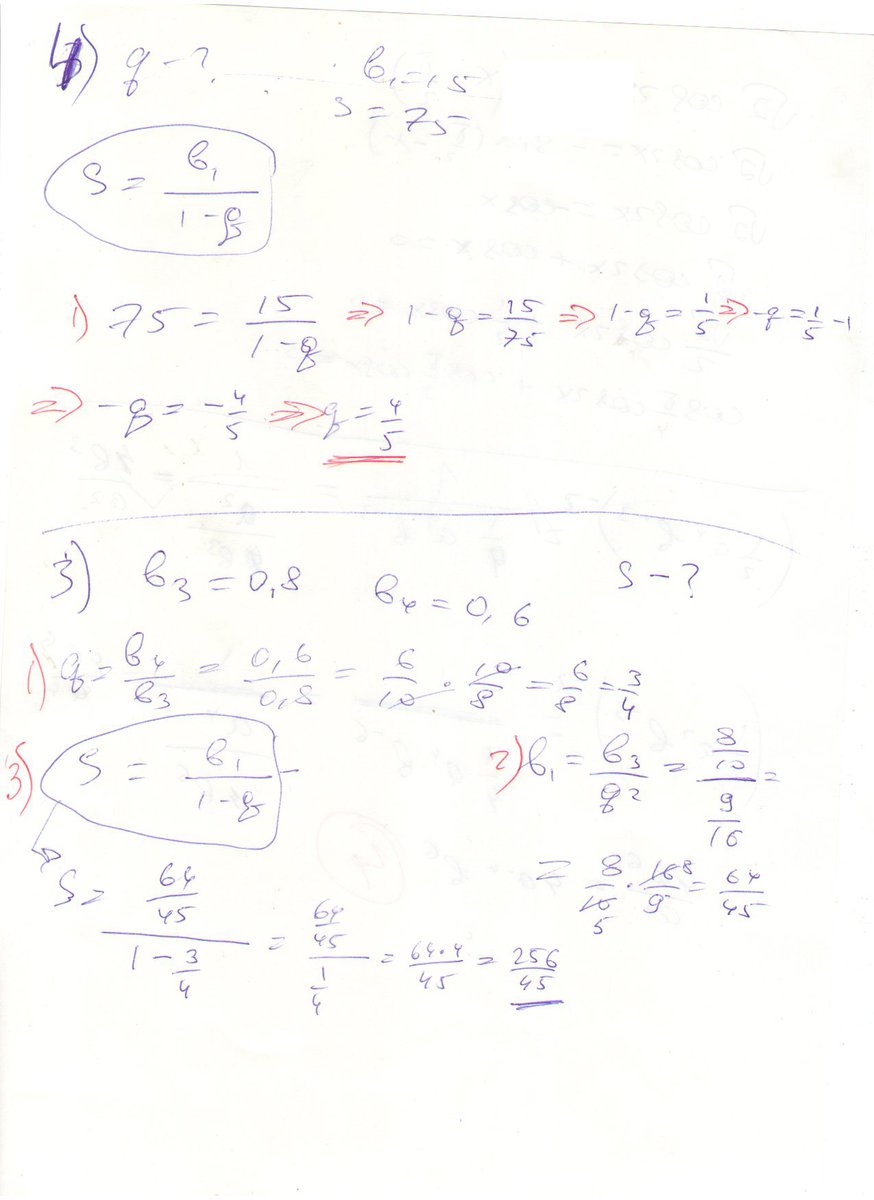 4) q - ? b₁ = 15
S = 75
S = b₁/(1-q)
1) 75 = 15/(1-q) => 1-q = 15/75 => 1-q = 1/5 => -q = 1/5 - 1
=> -q = -4/5 => q = 4/5
3) b₃ = 0,8 b₄ = 0,6 S - ?
1) q = b₄/b₃ = 0,6/0,8 = 6/10 · 10/8 = 6/8 = 3/4
2) b₁ = b₃/q² = (8/10)/(9/16) =
= 8/10 · 16/9 = 64/45
5 8
3) S = b₁/(1-q)
S = (64/45)/(1-3/4) = (64/45)/(1/4) = 64·4/45 = 256/45